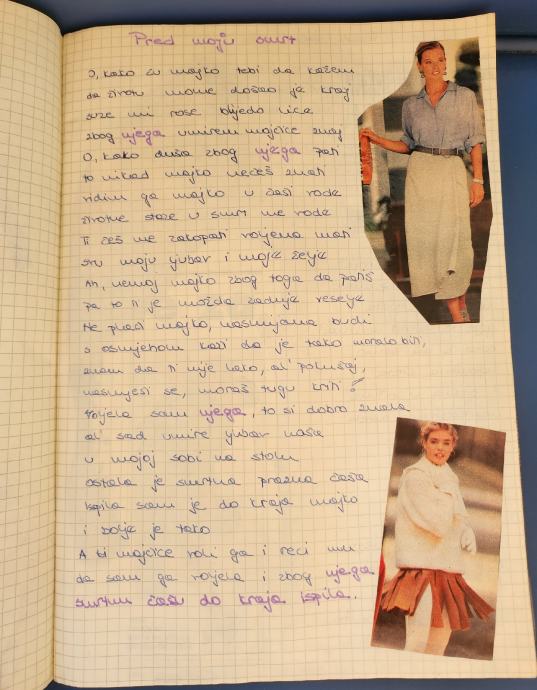 Pred moju smrt
O, kako ću majko tebi da kažem
da životu mome došao je kraj
suze mi rose blijedo lice
zbog njega umirem majčice znaj
O, kako duša zbog njega pati
to nikad majko nećeš znati
vidim ga majko u čaši vode
životne staze u smrt me vode
Ti ćeš me zakopati voljena mati
svu moju ljubav i moje želje
Ah, nemoj majko zbog toga da patiš
pa to ti je možda zadnje veselje
Ne plači majko, nasmijana budi
s osmjehom kaži da je tako moralo biti,
znam da ti nije lako, al' pokušaj,
nasmješi se, moraš tugu kriti!
Voljela sam njega, to si dobro znala
al' sad umire ljubav naša
u mojoj sobi na stolu
ostala je smrtna prazna čaša
Ispila sam je do kraja majko
i bolje je tako
A ti majčice voli ga i reci mu
da sam ga voljela i zbog njega
smrtnu čašu do kraja ispila.